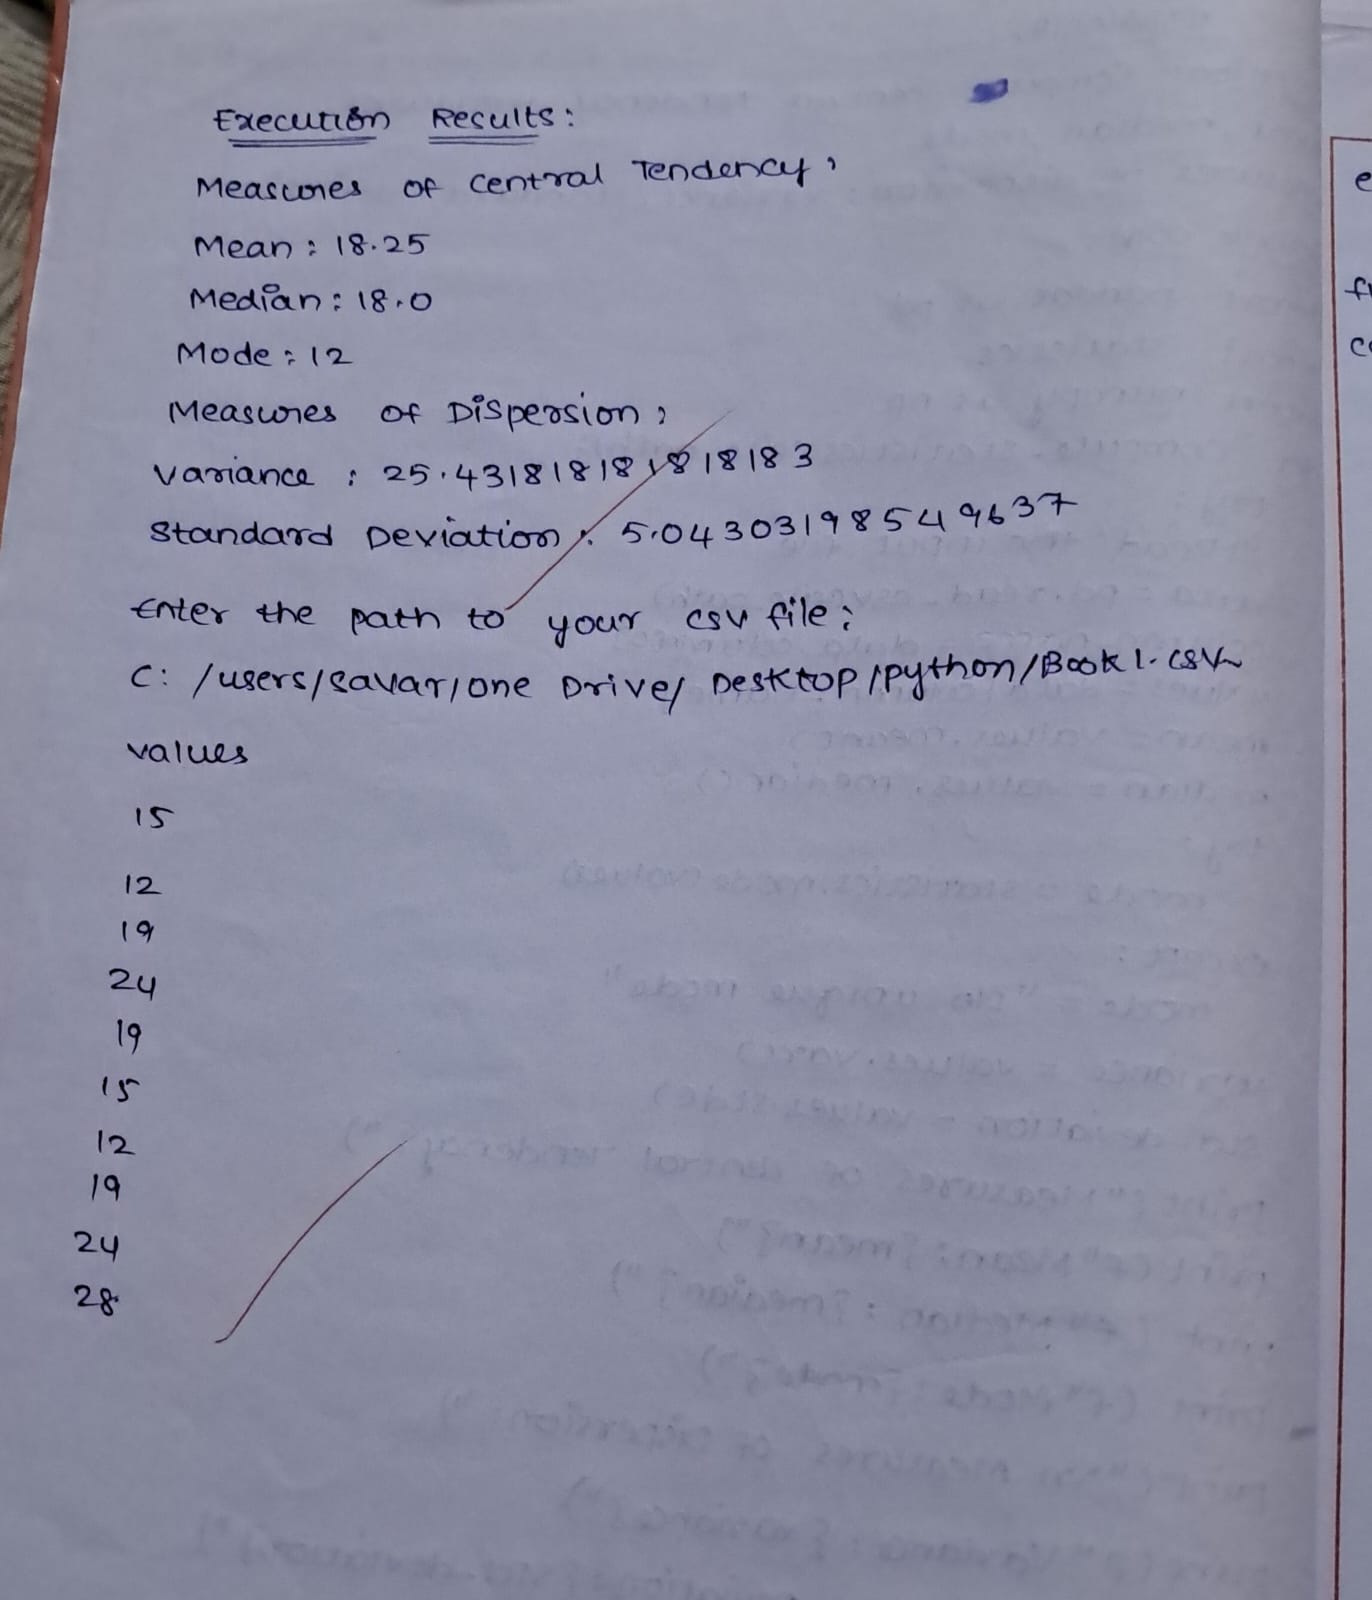 Execution Results:
Measures of central Tendency,
Mean: 18.25
Median: 18.0
Mode: 12
Measures of Dispersion,
variance : 25.431818181818183
Standard Deviation: 5.043031985549637
Enter the path to your csv file:
C: /users/savar/one Drive/ Desktop/python/Book1.csv
values
15
12
19
24
19
15
12
19
24
28
e
c